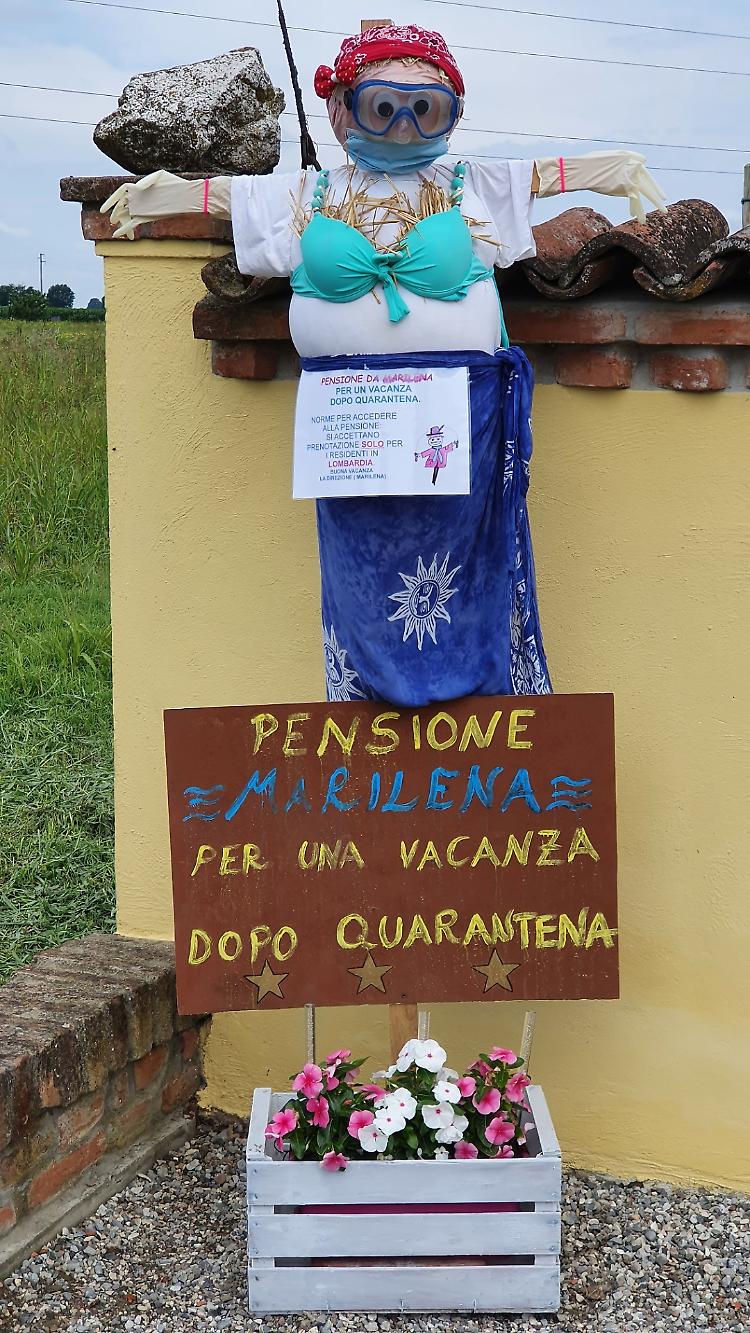 PENSIONE DA MARILENA
PER UN VACANZA
DOPO QUARANTENA.
NORME PER ACCEDERE
ALLA PENSIONE:
SI ACCETTANO
PRENOTAZIONE SOLO PER
I RESIDENTI IN
LOMBARDIA
BUONA VACANZA
LA DIREZIONE ( MARILENA)
PENSIONE
MARILENA
PER UNA VACANZA
DOPO QUARANTENA